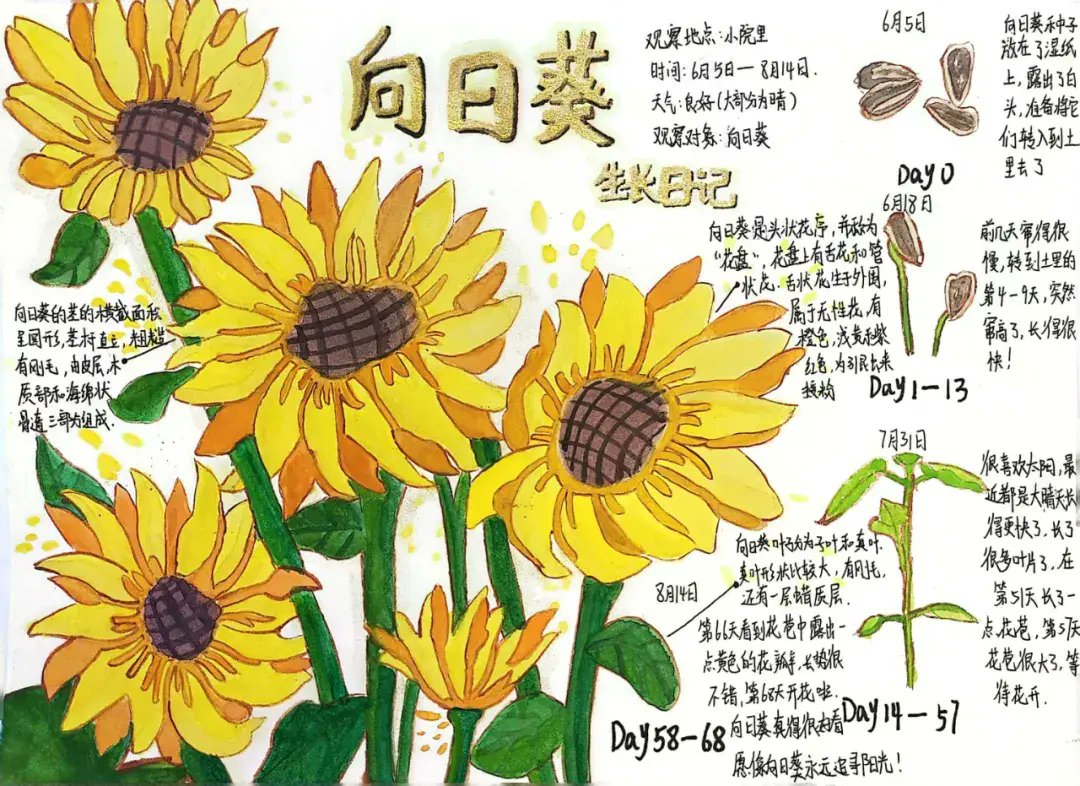 向日葵
生长日记
观察地点:小院里
时间:6月5日—8月14日.
天气:良好(大部分为晴)
观察对象:向日葵
6月5日
向日葵种子
放在了湿纸
上,露出了白
头,准备将它
们转入到土
里去了
Day 0
6月18日
前几天窜得很
慢,转到土里的
第4-9天,突然
窜高了,长得很
快!
Day1—13
向日葵是头状花序,并称为
“花盘”,花盘上有舌花和管
状花.舌状花生于外围,
属于无性花,有
橙色,浅黄和紫
红色,为引昆虫来
授粉
向日葵的茎的横截面积
呈圆形,茎杆直立,粗糙
有刚毛,由皮层,木
质部和海绵状
骨造三部分组成.
7月31日
很喜欢太阳,最
近都是大晴天长
得更快了,长了
很多叶片了,在
第51天长了一
点花苞,第57天
花苞很大了,等
待花开.
Day14—57
向日葵叶子分为子叶和真叶.
真叶形状比较大,有刚毛,
还有一层蜡质层.
8月14日
第66天看到花苞中露出一
点黄色的花瓣,长势很
不错,第68天开花啦.
向日葵真得很好看
愿像向日葵永远追寻阳光!
Day58-68